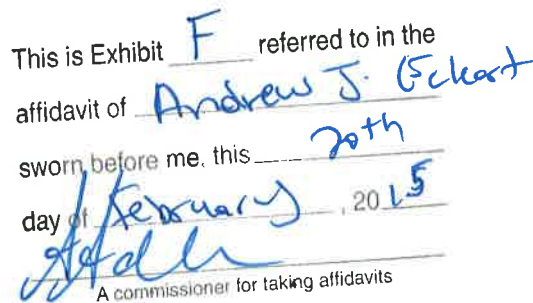 This is Exhibit F referred to in the
affidavit of Andrew J. Eckart
sworn before me, this 20th
day of February, 2015
A commissioner for taking affidavits